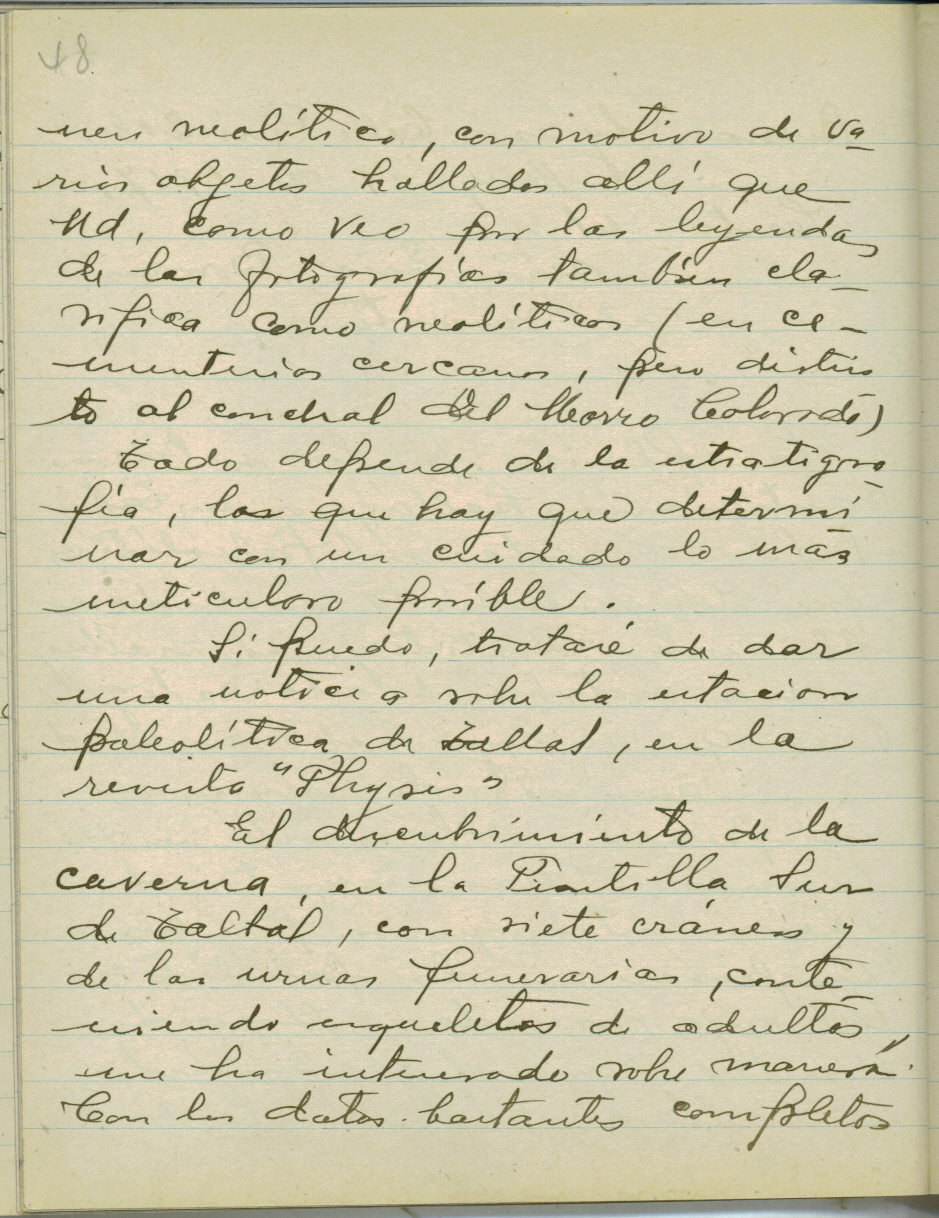 48
nen neolítico, con motivo de va-
rios objetos hallados allí que
Ud, como veo por las leyendas
de las fotografías también cla-
sifica como neolíticos (en ce-
menterios cercanos, pero distin
to al conchal del Morro Colorado)
Todo depende de la estratigra-
fía, las que hay que determi
nar con un cuidado lo más
meticuloso posible.
Si puedo, trataré de dar
una noticia sobre la estacion
paleolítica de Taltal, en la
revista "Physis"
El descubrimiento de la
caverna, en la Puntilla Sur
de Taltal, con siete cráneos y
de las urnas funerarias, conte-
niendo esqueletos de adultos,
me ha interesado sobre manera.
Con los datos bastantes completos